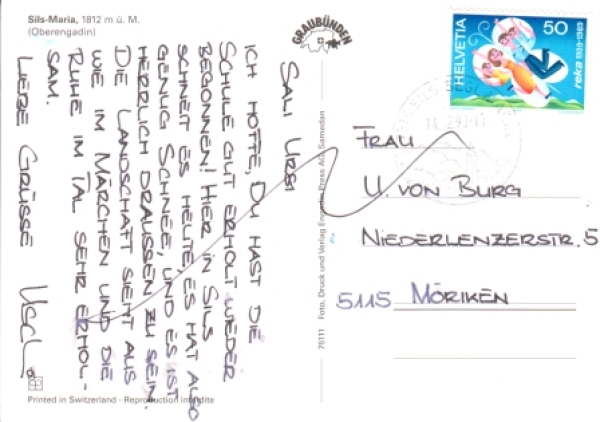 Sils-Maria, 1812 m ü. M.
(Oberengadin)
GRAUBÜNDEN
HELVETIA
50
reka 1939-1989
SALI URSI
ICH HOFFE, DU HAST DIE
SCHULE GUT ERHOLT WIEDER
BEGONNEN! HIER IN SILS
SCHNEIT ES HEUTE, ES HAT ALSO
GENUG SCHNEE, UND ES IST
HERRLICH DRAUSSEN ZU SEIN.
DIE LANDSCHAFT SIEHT AUS
WIE IM MÄRCHEN UND DIE
RUHE IM TAL SEHR ERHOL-
SAM.
LIEBE GRÜSSE
75111 Foto, Druck und Verlag Engadin Press AG, Samedan
FRAU
U. VON BURG
NIEDERLENZERSTR. 5
5115 MÖRIKEN
Printed in Switzerland - Reproduction interdite